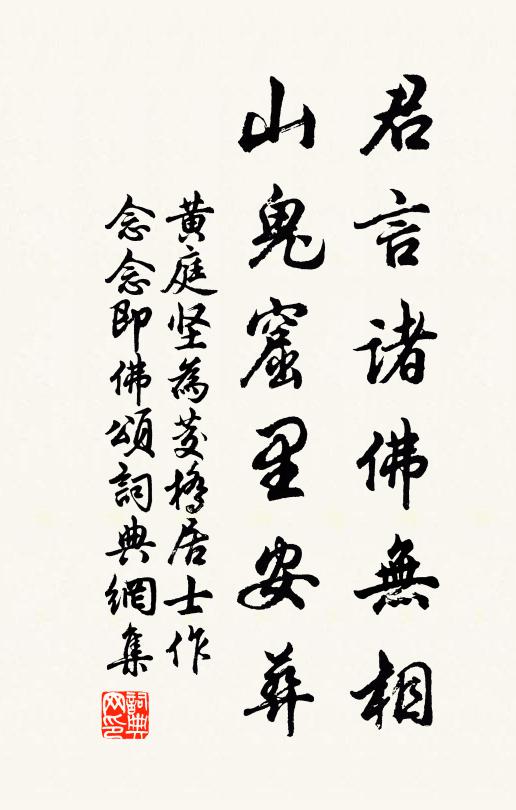 君言諸佛無相
山鬼窟里安葬
黃庭坚為菱橋居士作
念念即佛頌詞典網集
詞典
网印